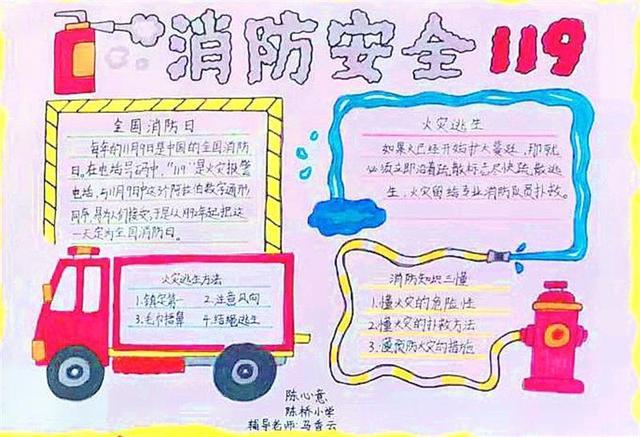 消防安全 119
全国消防日
每年的11月9日是中国的全国消防
日。在电话号码中,“119”是火灾报警
电话,与11月9日中这3个阿拉伯数字通形
同序,易为人们接受,于是从1992年起把这
一天定为全国消防日。
火灾逃生
如果火已经开始扩大蔓延,那就
必须立即沿着疏散标志尽快疏散逃
生,火留给专业消防队员扑救。
火灾逃生方法
1.镇定第一 2.注意风向
3.毛巾捂鼻 4.结绳逃生
消防知识三懂
1.懂火灾的危险性
2.懂火灾的扑救方法
3.懂预防火灾的措施
陈心意
陈桥小学
辅导老师:马香云